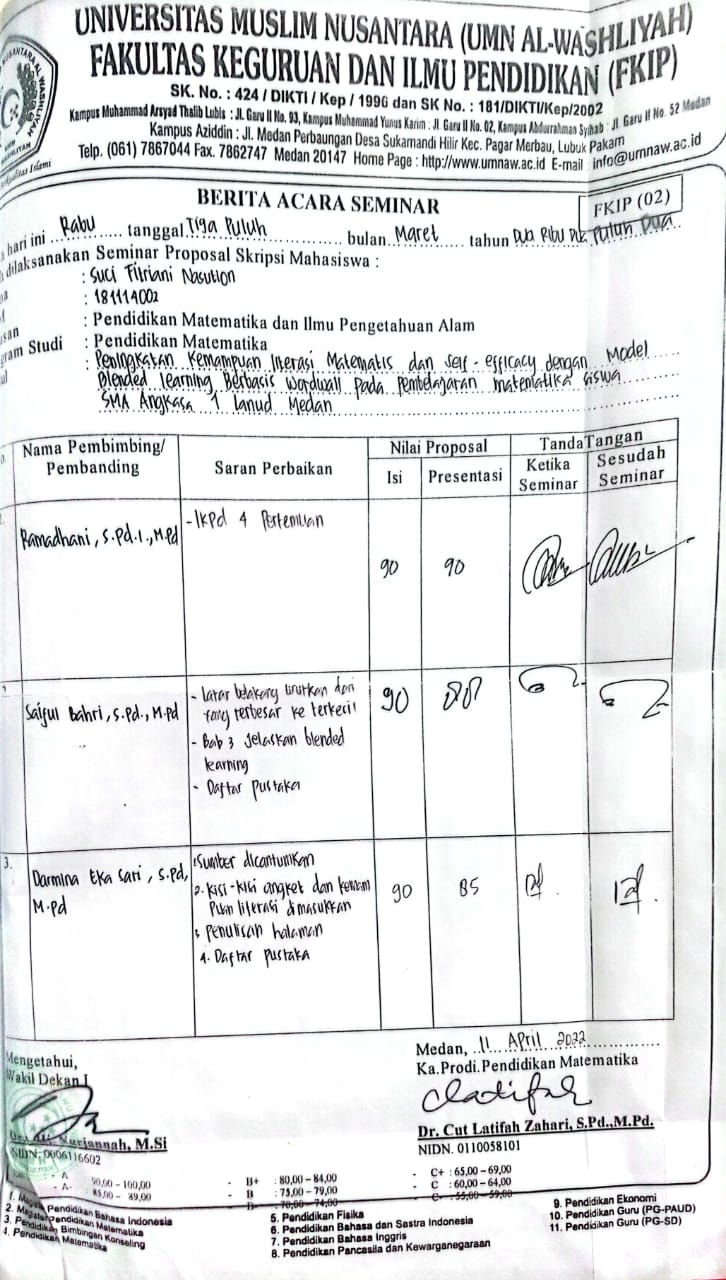 UNIVERSITAS MUSLIM NUSANTARA (UMN AL-WASHLIYAH)
FAKULTAS KEGURUAN DAN ILMU PENDIDIKAN (FKIP)
SK. No. : 424 / DIKTI / Kep / 1996 dan SK No. : 181/DIKTI/Kep/2002
Kampus Muhammad Arsyad Thalib Lubis : Jl. Garu II No. 93, Kampus Muhammad Yunus Karim : Jl. Garu II No. 02, Kampus Abdurrahman Syihab : Jl. Garu II No. 52 Medan
Kampus Aziddin : Jl. Medan Perbaungan Desa Sukamandi Hilir Kec. Pagar Merbau, Lubuk Pakam
Telp. (061) 7867044 Fax. 7862747 Medan 20147 Home Page : http://www.umnaw.ac.id E-mail info@umnaw.ac.id
BERITA ACARA SEMINAR
FKIP (02)
hari ini Rabu tanggal Tiga Puluh bulan Maret tahun Dua Ribu Puluh Dua
dilaksanakan Seminar Proposal Skripsi Mahasiswa :
: Suci Fitriani Nasution
: 181114002
: Pendidikan Matematika dan Ilmu Pengetahuan Alam
Studi : Pendidikan Matematika
: Peningkatan Kemampuan literasi Matematis dan self-efficacy dengan Model
Blended learning Berbasis wordwall pada pembelajaran matematika siswa
SMA Angkasa 1 Lanud Medan
Nama Pembimbing/ Pembanding
Saran Perbaikan
Nilai Proposal
Isi
Presentasi
TandaTangan
Ketika Seminar
Sesudah Seminar
Ramadhani, S.Pd.I., M.Pd
- lkpd 4 Pertemuan
90
90
Saiful Bahri, S.Pd., M.Pd
- Latar belakang urutkan dari
yang terbesar ke terkecil
- Bab 3 jelaskan blended
learning
- Daftar pustaka
90
3.
Darmina Eka Sari, S.Pd,
M.Pd
1. Sumber dicantumkan
2. Kisi-kisi angket dan kemam
puan literasi dimasukkan
3 penulisan halaman
4. Daftar pustaka
90
85
Medan, 11 April 2022
Ka.Prodi.Pendidikan Matematika
Mengetahui,
Wakil Dekan I
Dr. Cut Latifah Zahari, S.Pd.,M.Pd.
NIDN. 0110058101
Nurjannah, M.Si
NIDN. 0606116602
- A 90,00 – 100,00
- A- 85,00 – 89,00
- B+ : 80,00 – 84,00
- B : 75,00 – 79,00
70,00 – 74,00
- C+ : 65,00 – 69,00
- C : 60,00 – 64,00
- C- : 55,00 – 59,00
1. Magister Pendidikan Bahasa Indonesia
2. Magister Pendidikan Matematika
3. Pendidikan Bimbingan Konseling
4. Pendidikan Matematika
5. Pendidikan Fisika
6. Pendidikan Bahasa dan Sastra Indonesia
7. Pendidikan Bahasa Inggris
8. Pendidikan Pancasila dan Kewarganegaraan
9. Pendidikan Ekonomi
10. Pendidikan Guru (PG-PAUD)
11. Pendidikan Guru (PG-SD)